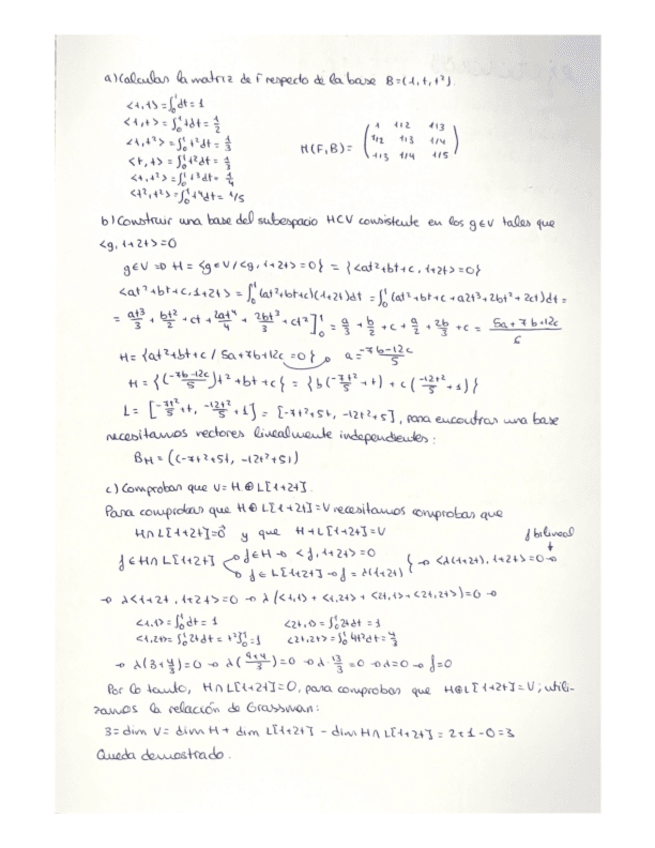 a) Calcular la matriz de F respecto de la base B=(1, t, t²).
<1,1> = ∫₀¹ dt = 1
<1,t> = ∫₀¹ t dt = 1/2
<1,t²> = ∫₀¹ t² dt = 1/3
<t,t> = ∫₀¹ t² dt = 1/3
<t,t²> = ∫₀¹ t³ dt = 1/4
<t²,t²> = ∫₀¹ t⁴ dt = 1/5
M(F,B) = ( 1 1/2 1/3
1/2 1/3 1/4
1/3 1/4 1/5 )
b) Construir una base del subespacio H⊂V consistente en los g∈V tales que
<g, 1+2t>=0
g∈V ⇒ H = {g∈V / <g, 1+2t>=0} = {<at²+bt+c, 1+2t>=0}
<at²+bt+c, 1+2t> = ∫₀¹ (at²+bt+c)(1+2t)dt = ∫₀¹ (at²+bt+c+a2t³+2bt²+2ct)dt =
= at³/3 + bt²/2 + ct + 2at⁴/4 + 2bt³/3 + ct²]₀¹ = a/3 + b/2 + c + a/2 + 2b/3 + c = (5a+7b+12c)/6
H = {at²+bt+c / 5a+7b+12c=0}, a = (-7b-12c)/5
H = {((-7b-12c)/5)t²+bt+c} = {b(-7t²/5 + t) + c(-12t²/5 + 1)}
L = [-7t²/5 + t, -12t²/5 + 1] = [-7t²+5t, -12t²+5], para encontrar una base
necesitamos vectores linealmente independientes:
B_H = (-7t²+5t, -12t²+5)
c) Comprobar que V = H ⊕ L[1+2t].
Para comprobar que H⊕L[1+2t]=V necesitamos comprobar que
H∩L[1+2t]=0⃗ y que H+L[1+2t]=V
f bilineal
f∈H∩L[1+2t] → f∈H → <f, 1+2t>=0
→ f∈L[1+2t] → f=λ(1+2t) } → <λ(1+2t), 1+2t>=0 →
→ λ<1+2t, 1+2t>=0 → λ(<1,1> + <1,2t> + <2t,1> + <2t,2t>)=0 →
<1,1> = ∫₀¹ dt = 1 <2t,1> = ∫₀¹ 2t dt = 1
<1,2t> = ∫₀¹ 2t dt = t²]₀¹ = 1 <2t,2t> = ∫₀¹ 4t² dt = 4/3
→ λ(3+4/3)=0 → λ(9+4/3)=0 → λ·13/3=0 → λ=0 → f=0
Por lo tanto, H∩L[1+2t]=0, para comprobar que H⊕L[1+2t]=V; utili-
zamos la relación de Grassman:
3 = dim V = dim H + dim L[1+2t] - dim H∩L[1+2t] = 2+1-0=3
Queda demostrado.